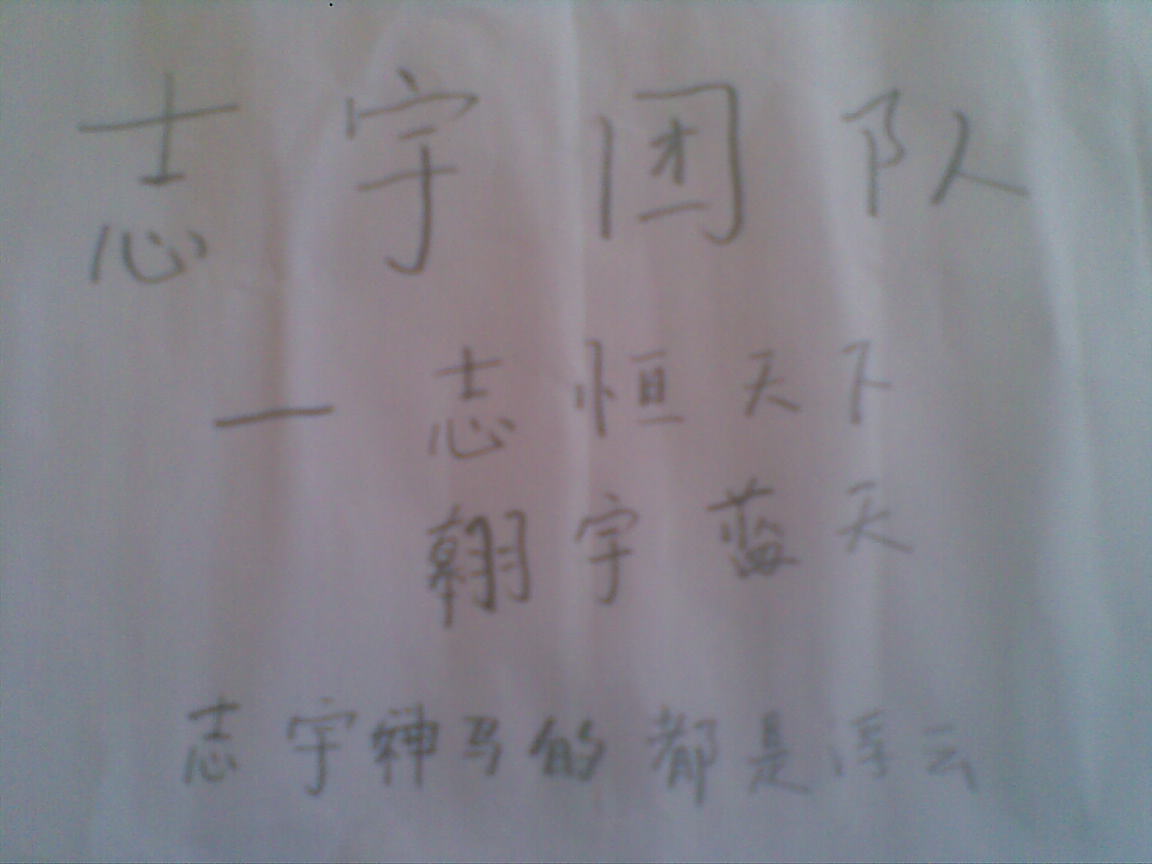 志宇团队
— 志恒天下
翱宇蓝天
志宇神马的都是浮云